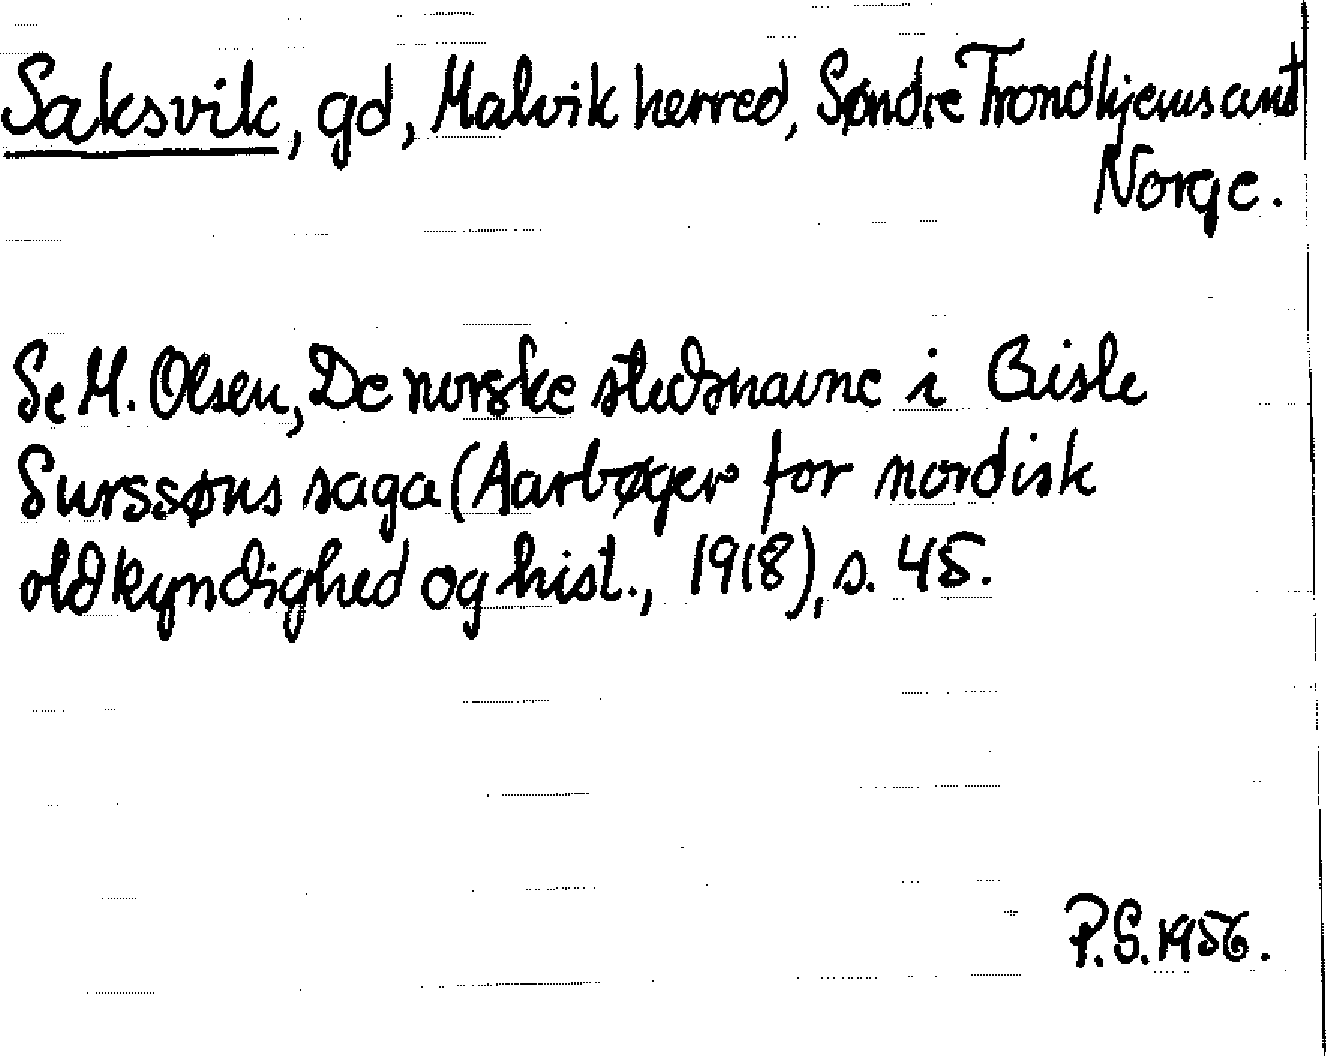 Saksvik, gd, Malvik herred, Søndre Trondhjems amt
Norge.
Se M. Olsen, De norske stedsnavne i Gisle
Surssøns saga (Aarbøger for nordisk
oldkyndighed og hist., 1918), s. 45.
P.S. 1956.